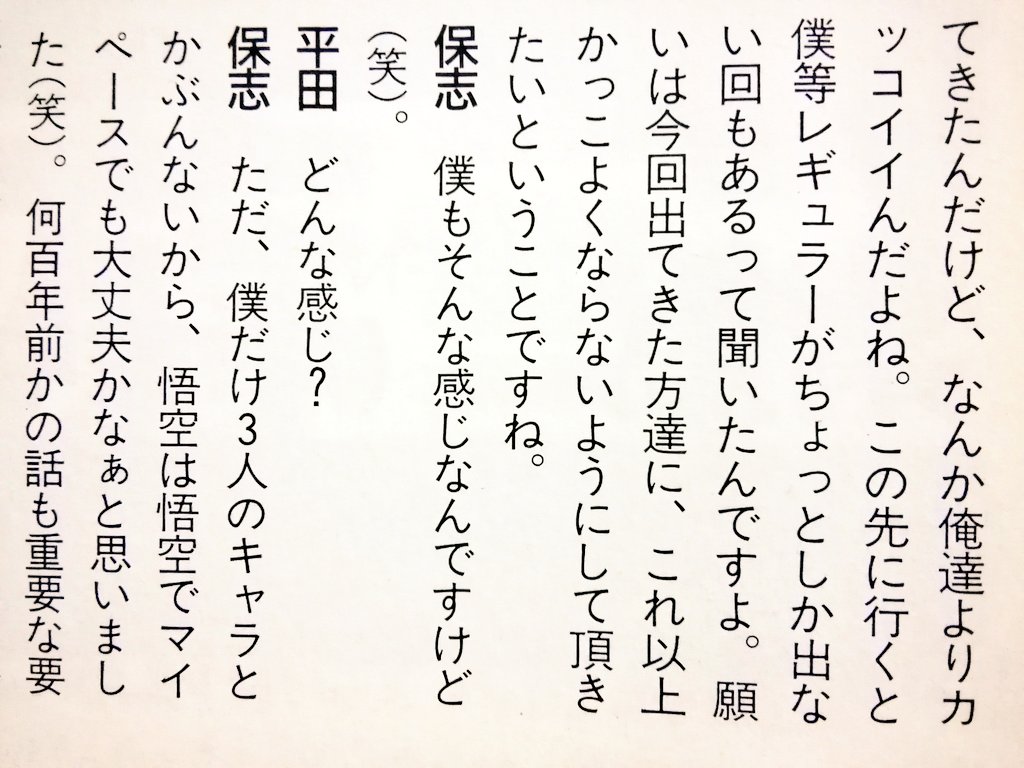 てきたんだけど、なんか俺達よりカ
ッコイイんだよね。この先に行くと
僕等レギュラーがちょっとしか出な
い回もあるって聞いたんですよ。願
いは今回出てきた方達に、これ以上
かっこよくならないようにして頂き
たいということですね。
保志　僕もそんな感じなんですけど
（笑）。
平田　どんな感じ？
保志　ただ、僕だけ3人のキャラと
かぶんないから、悟空は悟空でマイ
ペースでも大丈夫かなぁと思いまし
た（笑）。何百年前かの話も重要な要